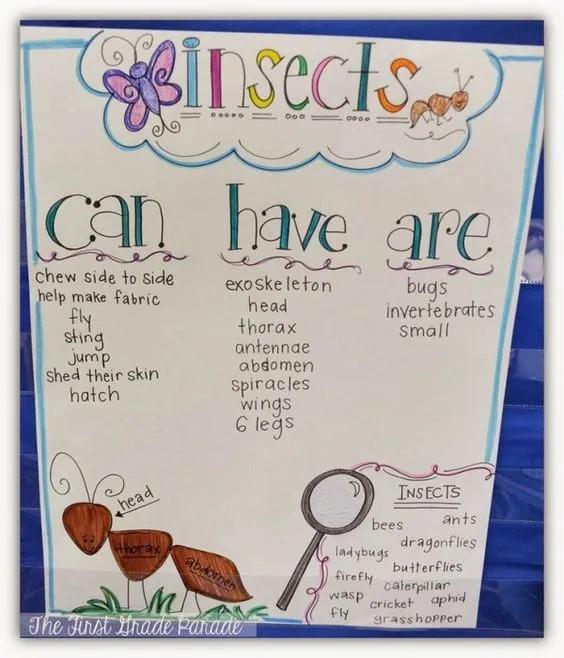 insects
can
chew side to side
help make fabric
fly
sting
jump
shed their skin
hatch
have
exoskeleton
head
thorax
antennae
abdomen
spiracles
wings
6 legs
are
bugs
invertebrates
small
head
thorax
abdomen
INSECTS
bees ants
dragonflies
ladybugs
butterflies
firefly
caterpillar
wasp
cricket aphid
fly
grasshopper
The First Grade Parade